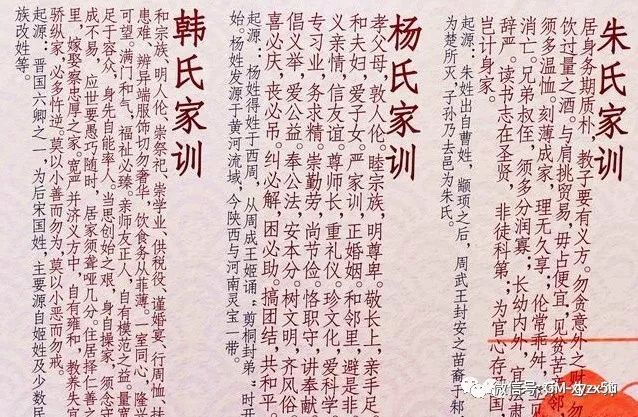 朱氏家训
居身务期质朴，教子要有义方。勿贪意外之财，勿
饮过量之酒。与肩挑贸易，毋占便宜，见贫苦
须多温恤。刻薄成家，理无久享；伦常乖舛，
消亡。兄弟叔侄，须多分润寡；长幼内外，宜
辞严。读书志在圣贤，非徒科第；为官心存
岂计身家。
起源：朱姓出自曹姓，颛顼之后，周武王封安之苗裔于邾，
为楚所灭，子孙乃去邑为朱氏。
杨氏家训
孝父母，敦人伦。睦宗族，明尊卑。敬长上，亲手足。
和夫妇，爱子女。严家训，正婚姻。和邻里，避是非。
义亲情，信友谊。尊师长，重礼仪。珍文化，爱科学。
专习业，务求精。崇勤劳，尚节俭。恪职守，讲奉献。
倡义举，爱公益。奉公法，安本分。树文明，齐风俗。
喜必庆，丧必吊。纠必解，困必助。搞团结，共和平。
起源：杨姓得姓于西周，从周成王姬诵“剪桐封弟”
始。杨姓发源于黄河流域，今陕西与河南灵宝一带。
韩氏家训
和宗族、明人伦、崇祭祀、崇学业、供税役、谨婚宴、行周恤、扶
患难、辨异端服饰切勿奢华，饮食务从菲薄。一室同心，隆兴
可望。满门和气，福祉必臻。亲师友正人，自有模范之益。量宽
足于容众，身先自能率人。当思创始之艰，身自操家，须念守
成不易，应世要愚巧随时，居家须聋哑几分。住居择仁善之
里，嫁娶察忠厚之家。宽严并济义方中，自有雍和，教养失宜
骄纵家，必多忤逆。莫以小善而勿为，莫以小恶而勿戒。
起源：晋国六卿之一，为后宋国姓，主要源自姬姓及少数民
族改姓等。
微信号：